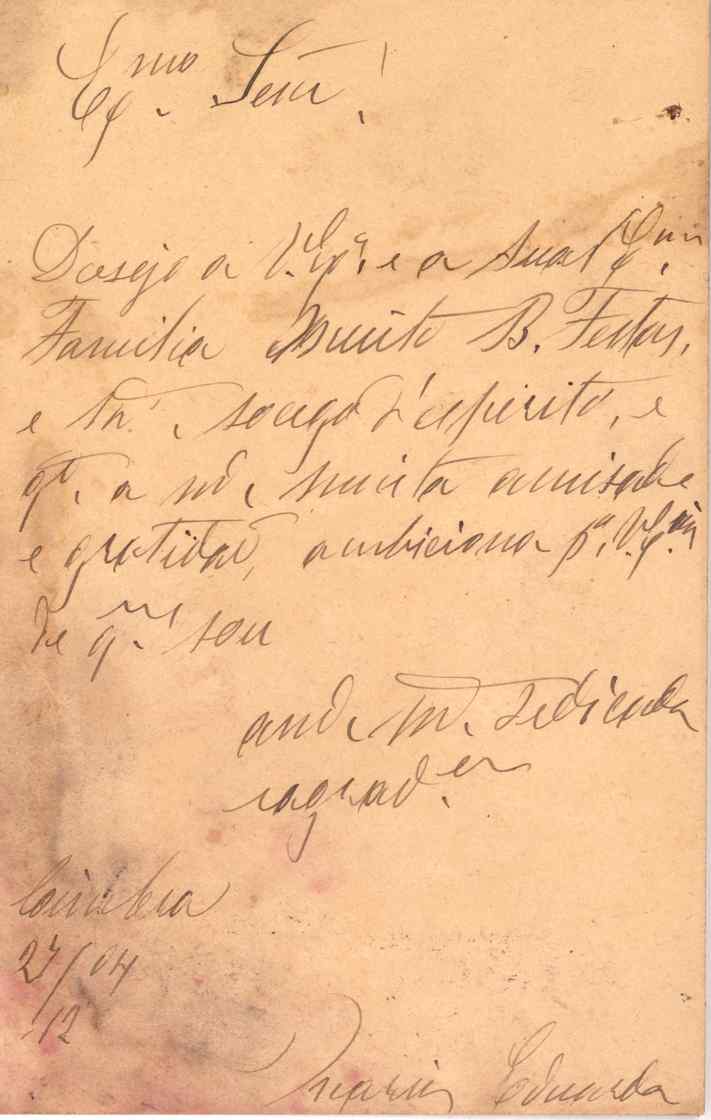 Exmo. Senr!
Desejo a V. Exa. e a sua Exma.
Familia Muito B. Festas,
e m.to socego d'espirito, e
qt. a md, muita amisade
e gratidão, ambiciona pa. V. Exia.
de qm. sou
amd. Mto. dedicada
e agrad.
Coimbra
27/04
12
Maria Eduarda